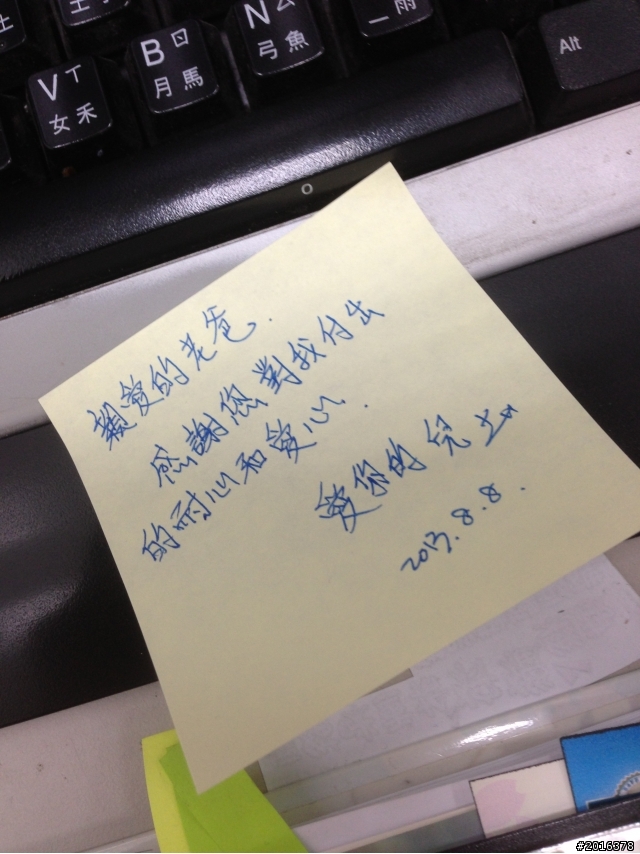 V ㄒ
女 禾
B ㄖ
月 馬
N ㄙ
弓 魚
一 雨
Alt
親愛的老爸.
感謝您對我付出
的耐心和愛心.
愛您的兒 上
2013.8.8.
#2016378